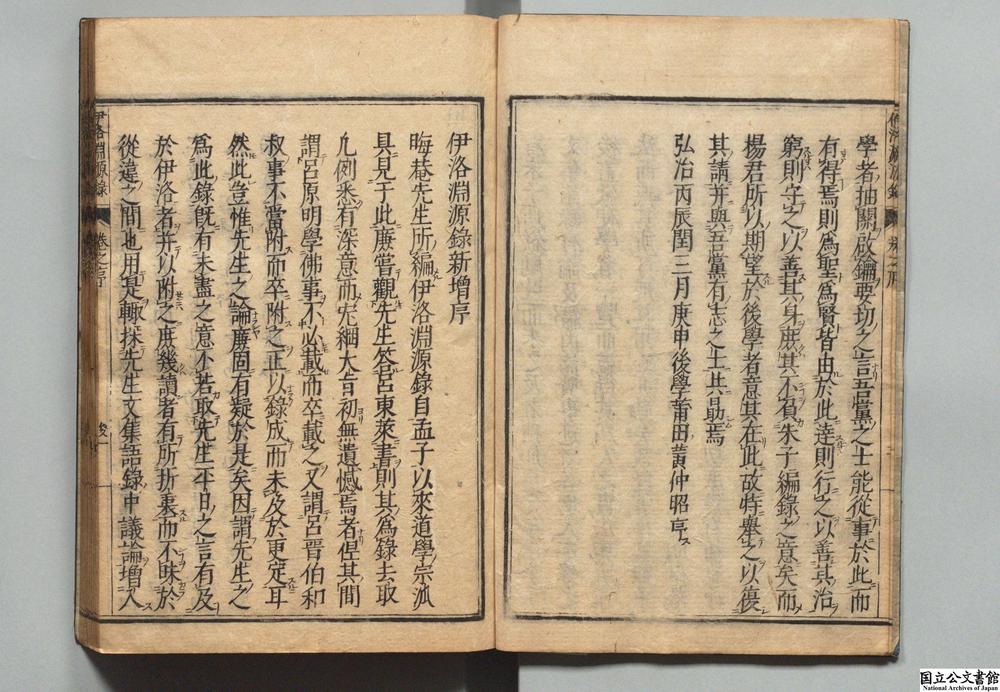 學者抽關啟鑰要切之言吾黨之士能從事於此而
有得焉則爲聖爲賢皆由於此達則行之以善其治
窮則守之以善其身庶其不負朱子編錄之意矣而
楊君所以期望於後學者意其在此故特舉之以復
其請并與吾黨有志之士共勗焉
弘治丙辰閏三月庚申後學莆田黃仲昭序
伊洛淵源錄新增序
晦菴先生所編伊洛淵源錄自孟子以來道學宗派
具見于此廉嘗觀先生答呂東萊書則其爲錄去取
凡例悉有深意而宏綱大旨初無遺憾焉者但其間
謂呂原明學佛事不必載而卒載之又謂呂晉伯和
叔事不當附而卒附之正以錄成而未及於更定耳
然此豈惟先生之論廉固有疑於是矣因謂先生之
爲此錄旣有未盡之意不若取先生平日之言有及
於伊洛者并以附之庶幾讀者有所折衷而不昧於
從違之間也用是輙採先生文集語錄中議論增入
伊洛淵源錄
卷之序
国立公文書館
National Archives of Japan